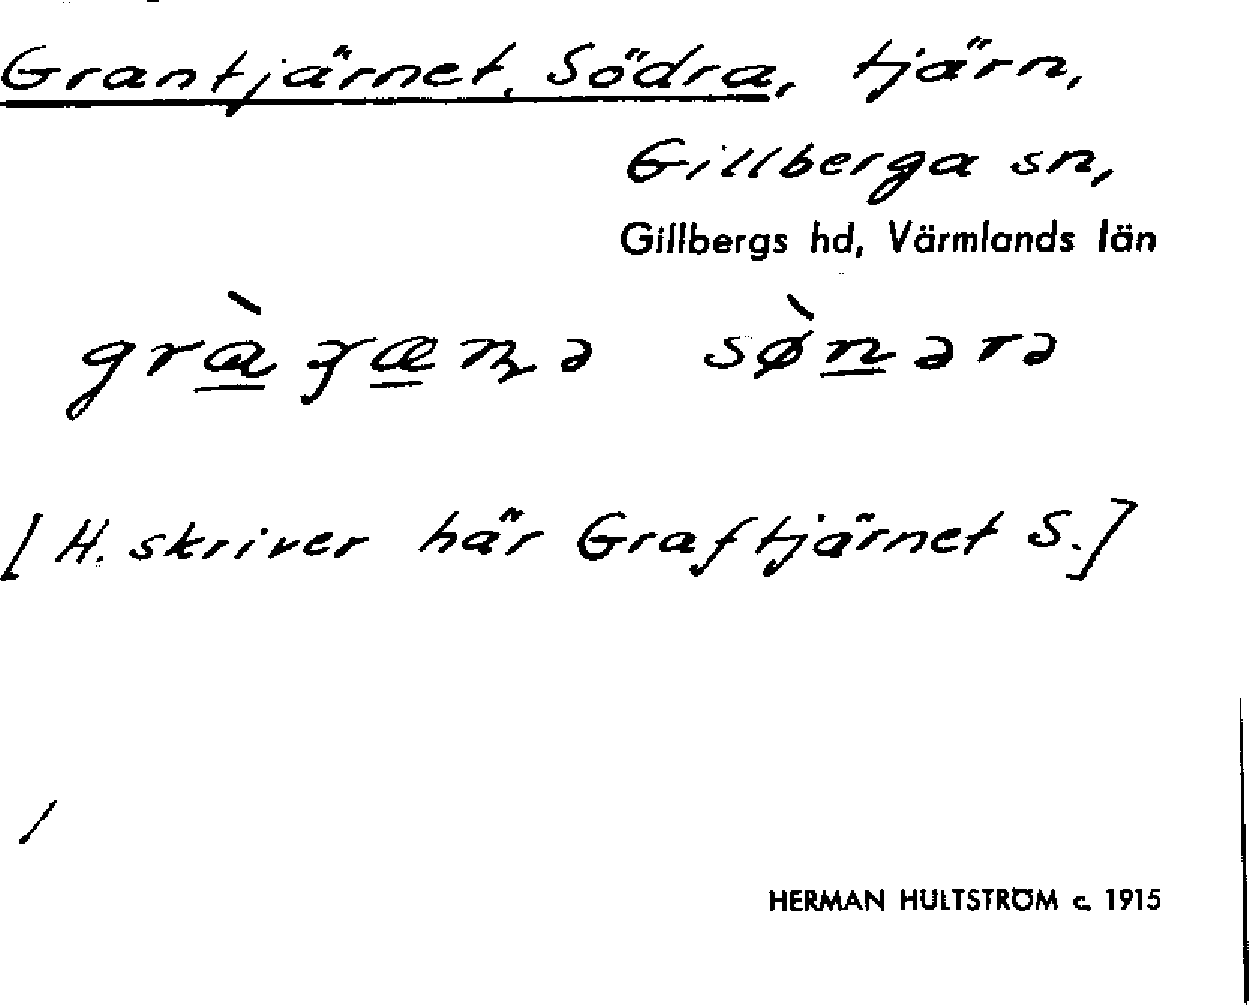 Grantjärnet, Södra, tjärn,
Gillberga sn,
Gillbergs hd, Värmlands län
[H. skriver här Graftjärnet S.]
/
HERMAN HULTSTRÖM c. 1915